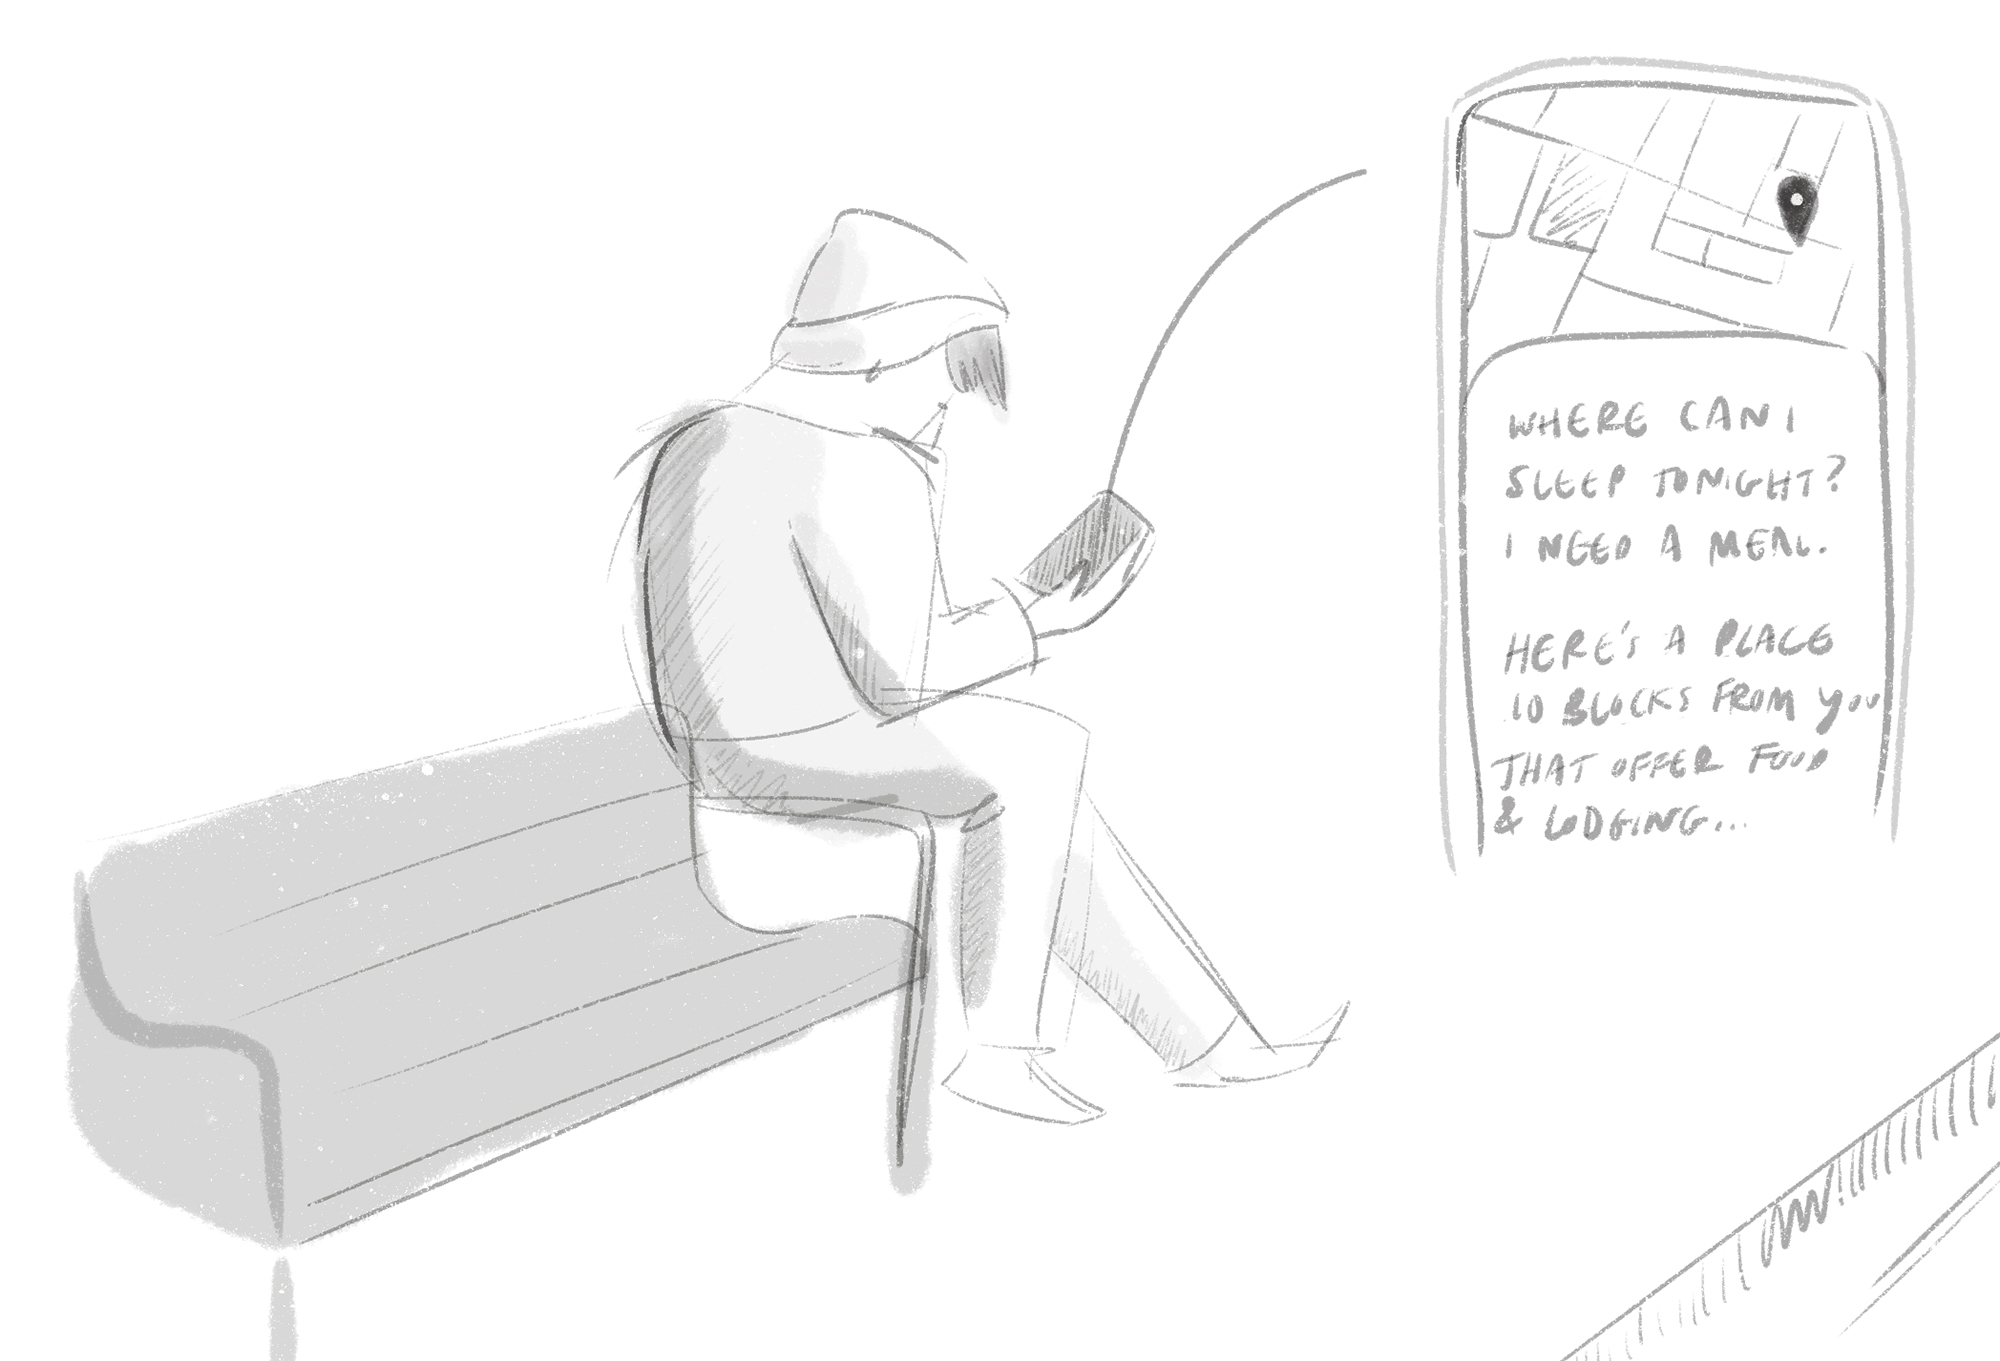 WHERE CAN I
SLEEP TONIGHT?
I NEED A MEAL.
HERE'S A PLACE
10 BLOCKS FROM YOU
THAT OFFER FOOD
& LODGING...